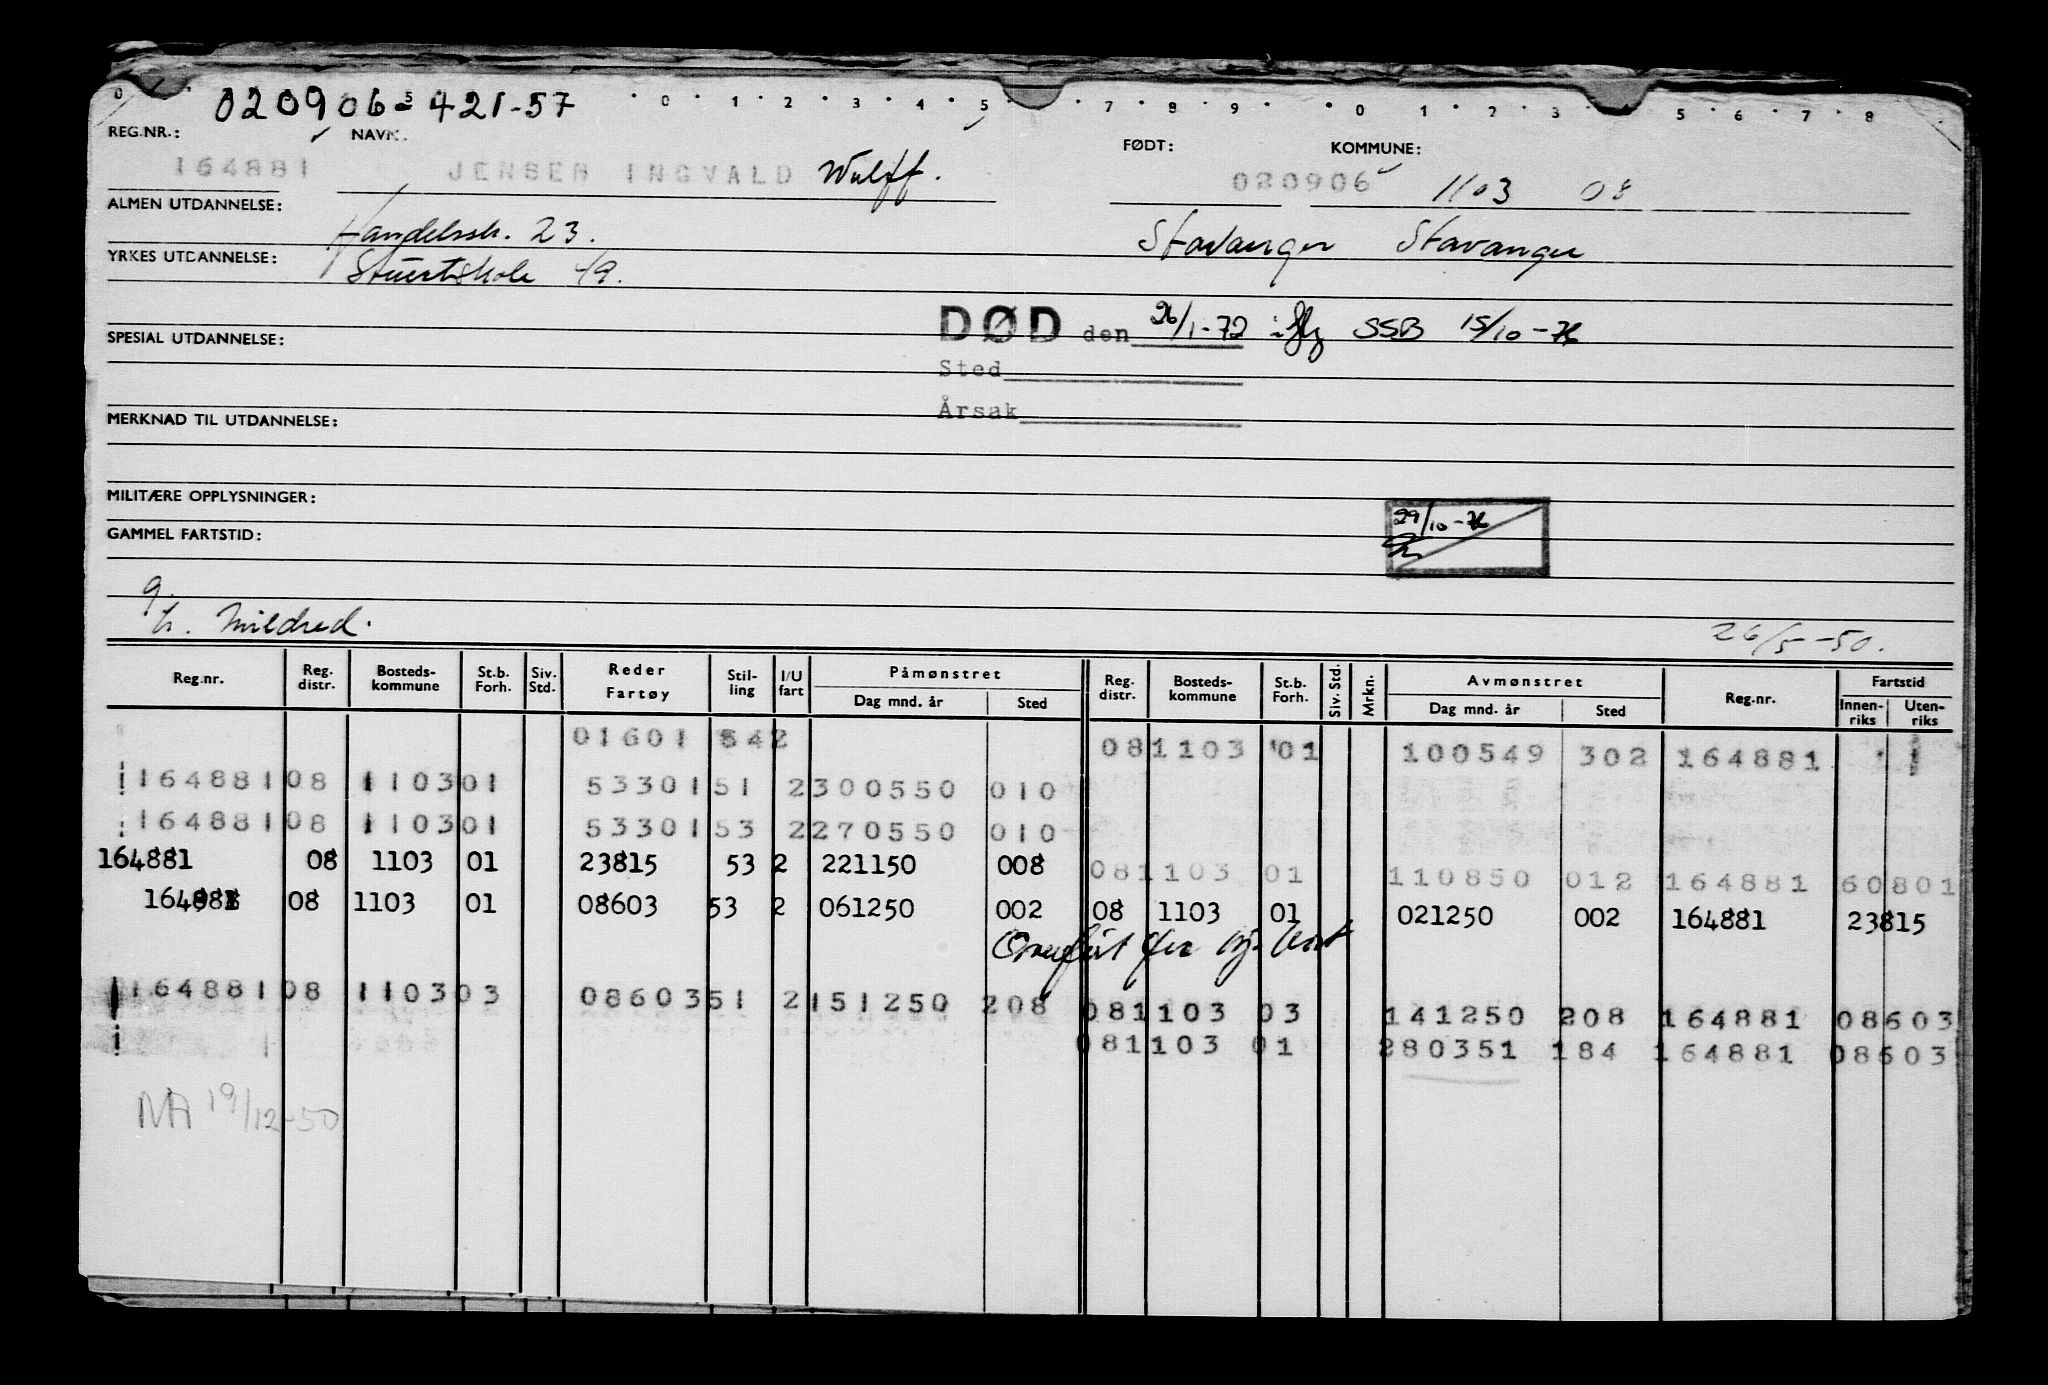 020906-421-57
0 1 2 3 4 5 7 8 9 0 1 2 3 5 6 7 8
REG.NR.: NAVN: FØDT: KOMMUNE:
164881 JENSEN INGVALD Wulff. 020906 1103 08
ALMEN UTDANNELSE: Handelssk. 23. Stavanger Stavanger
YRKES UTDANNELSE: Stuertskole 49.
DØD den 26/1-72 SSB 15/10-76
SPESIAL UTDANNELSE:
Sted
Årsak
MERKNAD TIL UTDANNELSE:
MILITÆRE OPPLYSNINGER:
29/10-76
GAMMEL FARTSTID:
g.
h. Mildred. 26/5-50.
Reg.nr. Reg. distr. Bosteds-kommune St.b. Forh. Siv. Std. Reder Fartøy Stil-ling I/U fart Påmønstret Dag mnd. år Sted Reg. distr. Bosteds-kommune St.b. Forh. Siv. Std. Mrkn. Avmønstret Dag mnd. år Sted Reg.nr. Fartstid Innen-riks Uten-riks
01601 842 081103 01 100549 302 164881
164881 08 1103 01 53301 51 2 300550 010
164881 08 1103 01 53301 53 2 270550 010
164881 08 1103 01 23815 53 2 221150 008 081103 01 110850 012 164881 60801
164881 08 1103 01 08603 53 2 061250 002 08 1103 01 021250 002 164881 23815
Overført
164881 08 1103 03 08603 51 2 151250 208 081103 03 141250 208 164881 08603
081103 01 280351 184 164881 08603
NA 19/12-50